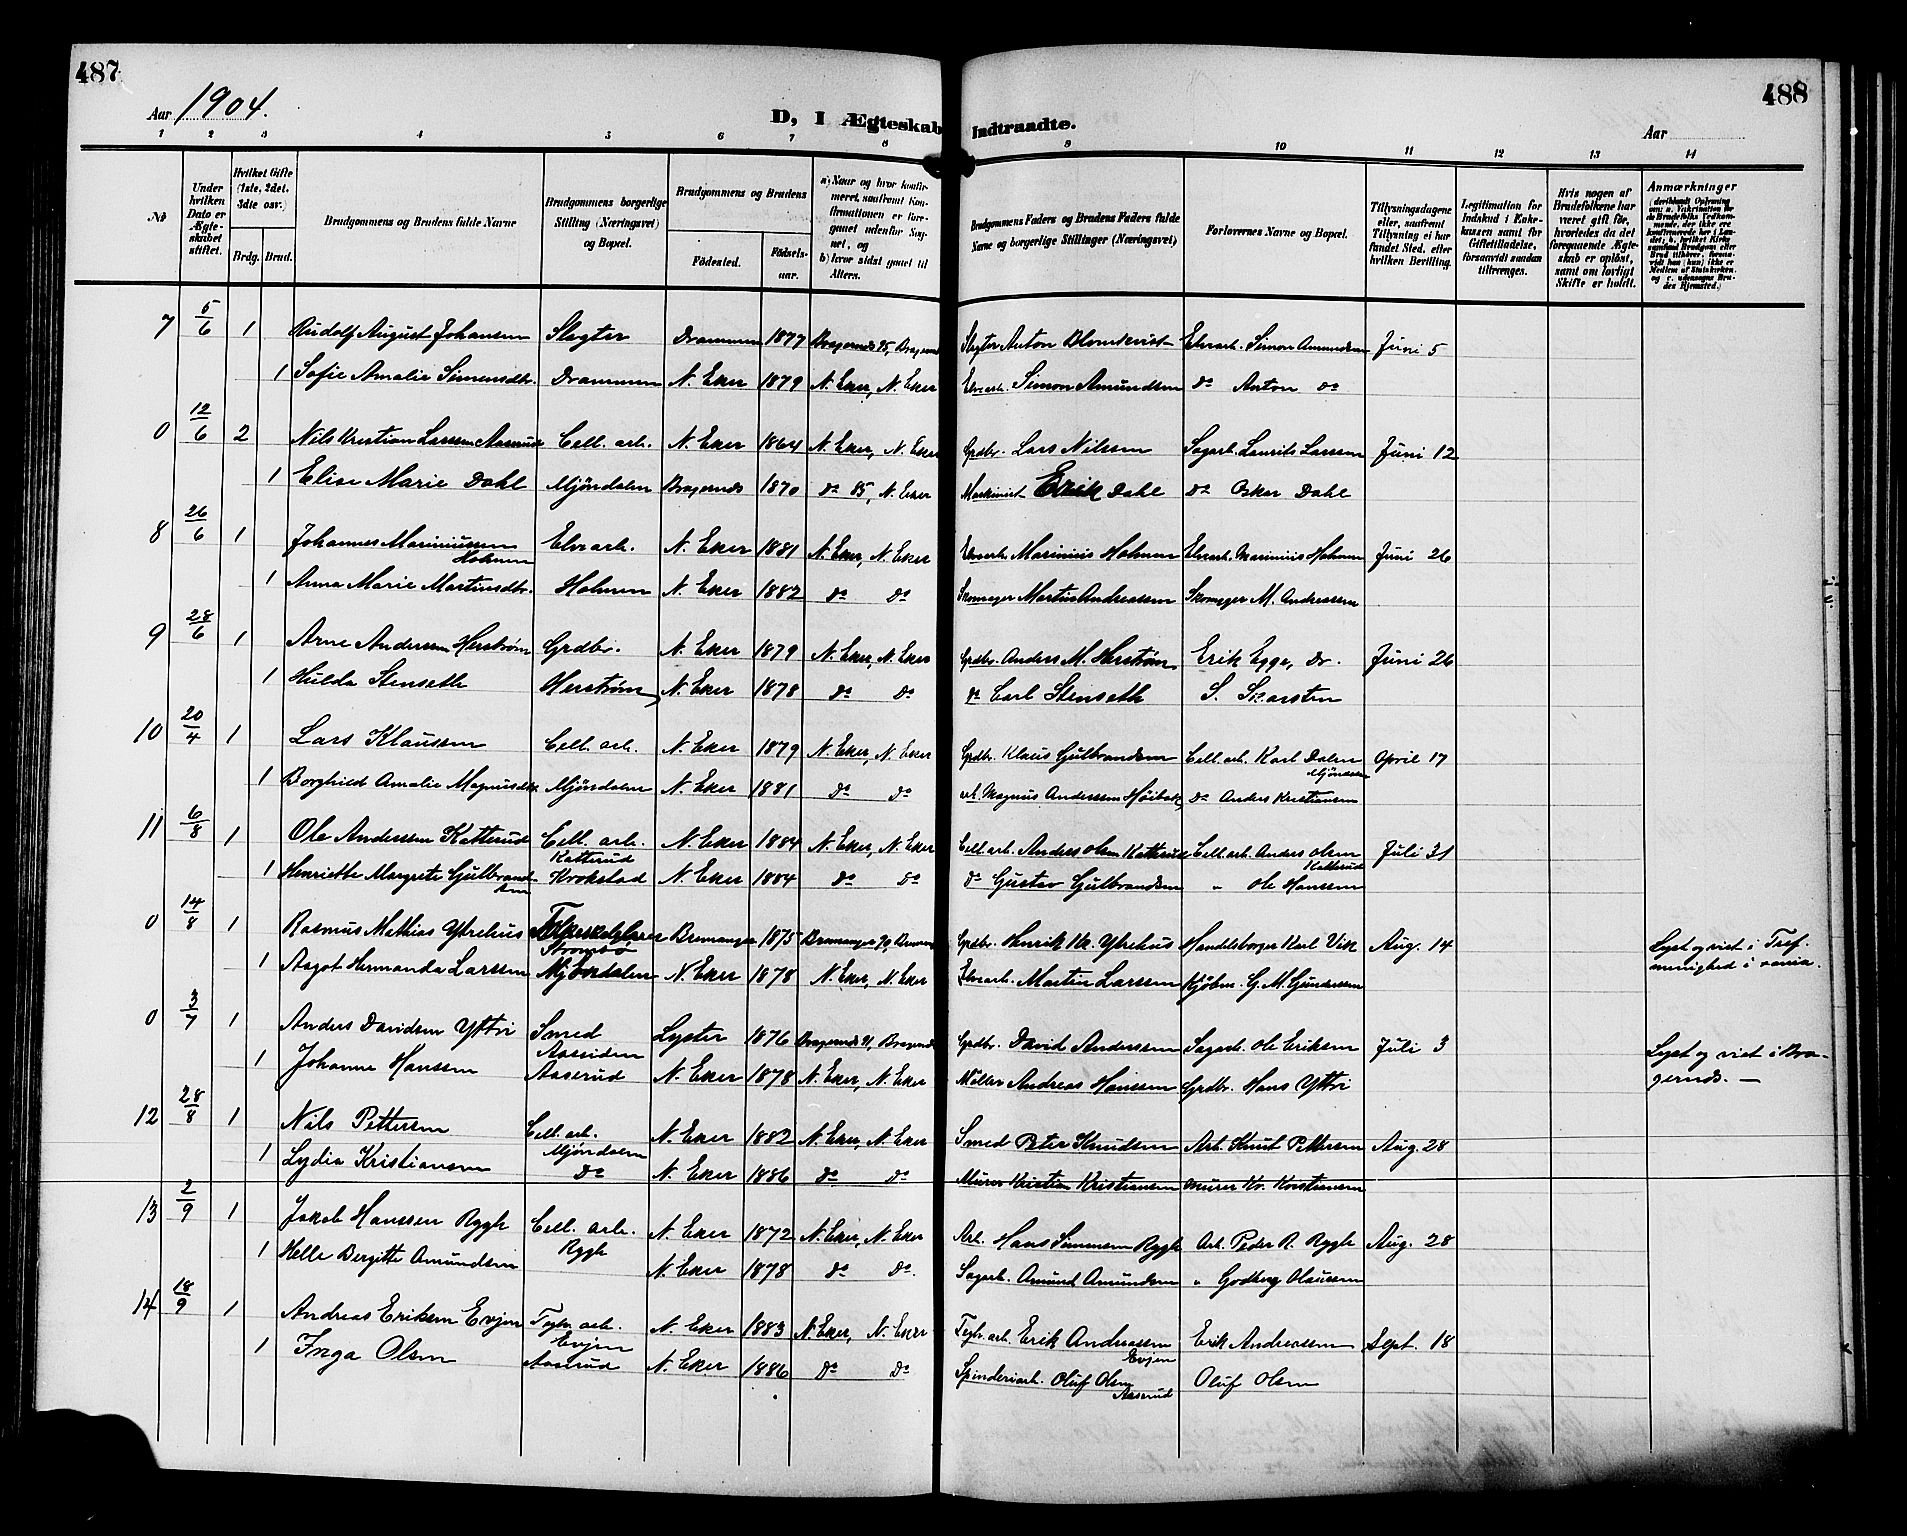 487
488
Aar 1904.
D, I Ægteskab Indtraadte.
Aar
1 2 3 4 5 6 7 8 9 10 11 12 13 14
No
Under hvilken Dato er Ægteskabet stiftet.
Hvilket Gifte (1ste, 2det. 3die osv.)
Brdg. Brud.
Brudgommens og Brudens fulde Navne
Brudgommens borgerlige Stilling (Næringsvei) og Bopæl.
Brudgommens og Brudens
Fødested. Fødselsaar.
a) Naar og hvor konfirmeret, saafremt Konfirmationen er foregaaet udenfor Sognet, og b) hvor sidst gaaet til Alters.
Brudgommens Faders og Brudens Faders fulde Navne og borgerlige Stillinger (Næringsvei)
Forlovernes Navne og Bopæl.
Tillysningsdagene eller, saafremt Tillysning ei har fundet Sted, efter hvilken Bevilling.
Legitimation for Indskud i Enkekassen samt for Giftetilladelse, forsaavidt saadan tiltrænges.
Hvis nogen af Brudefolkene har været gift før, hvorledes da det foregaaende Ægteskab er opløst, samt om lovligt Skifte er holdt.
Anmærkninger
7 5/6 1 Rudolf August Johansen Slagter Drammen 1877 Bragernes 95, Bragernes Slagter Anton Blomkvist Elvearb. Simon Amundsen Juni 5
1 Sofie Amalie Simensdtr. Drammen N. Eker 1879 N. Eker, N. Eker Elvearb. Simon Amundsen do Anton do
0 12/6 2 Nils Kristian Larssen Aasrud Cell. arb. N. Eker 1864 N. Eker, N. Eker Grdbr. Lars Nilssen Sagarb. Laurits Larssen Juni 12
1 Elise Marie Dahl Mjøndalen Bragernes 1870 do 85, N. Eker Maskinist Erik Dahl do Oskar Dahl
8 26/6 1 Johannes Mariniussen Holmen Elvearb. N. Eker 1881 N. Eker, N. Eker Elvearb. Marinius Holmen Elvearb. Marinius Holmen Juni 26
1 Anna Marie Martinsdtr. Holmen N. Eker 1882 do do Skomager Martin Andreassen Skomager M. Andreassen
9 28/6 1 Arne Anderssen Herstrøm Grdbr. N. Eker 1879 N. Eker, N. Eker Grdbr. Anders M. Herstrøm Erik Egge, Dr. Juni 26
1 Hulda Stenseth Herstrøm N. Eker 1878 do do do Carl Stenseth S. Skarsten
10 20/4 1 Lars Klaussen Cell. arb. N. Eker 1879 N. Eker, N. Eker Grdbr. Klaus Gulbrandsen Cell. arb. Karl Dalen April 17
Mjøndalen
1 Borghild Amalie Magnusdtr. Mjøndalen N. Eker 1881 do do arb. Magnus Anderssen Høibak do Anders Kristiansen
11 6/8 1 Ole Anderssen Katterud Cell. arb. N. Eker 1884 N. Eker, N. Eker Cell. arb. Anders Olsen Katterud Cell. arb. Anders Olsen Juli 31
Katterud Katterud
1 Henriette Margrete Gulbrandsen Krokstad N. Eker 1884 do do do Gustav Gulbrandsen " Ole Hanssen
0 14/8 1 Rasmus Mathias Ytrehus Bremanger 1875 Bremanger 90, Grdbr. Henrik Kr. Ytrehus Handelsborger Karl Vik Aug. 14 Lyst og viet i
Strømbo
1 Aagot Hermanda Larssen Mjøndalen N. Eker 1878 N. Eker, N. Eker Elvearb. Martin Larssen Kjøbm. G. M. Gundersen menighed i
0 3/7 1 Anders Davidsen Yttri Smed Lyster 1876 Bragernes 91, Bragernes Grdbr. David Anderssen Sagarb. Ole Eriksen Juli 3 Lyst og viet i Bra-
Aassiden
1 Johanne Hanssen Aaserud N. Eker 1878 N. Eker, N. Eker Møller Andreas Hanssen Grdbr. Hans Yttri gernes. —
12 28/8 1 Nils Pettersen Cell. arb. N. Eker 1882 N. Eker, N. Eker Smed Peter Knudsen Arb. Knut Pettersen Aug. 28
Mjøndalen
1 Lydia Kristiansen do N. Eker 1886 do do Murer Kristian Kristiansen Murer Kr. Kristiansen
13 2/9 1 Jakob Hanssen Rygh Cell. arb. N. Eker 1872 N. Eker, N. Eker Arb. Hans Simensen Rygh Arb. Peder R. Rygh Aug. 28
Rygh
1 Helle Bergitte Amundsen N. Eker 1878 do do. Sagarb. Amund Amundsen " Godberg Olaussen
14 18/9 1 Andreas Eriksen Evjen Teglv. arb. N. Eker 1883 N. Eker, N. Eker Teglv. arb. Erik Andreassen Erik Andreassen Sept. 18
Evjen Evjen
1 Inga Olsen Aaserud N. Eker 1886 do do Spinderiarb. Oluf Olsen Oluf Olsen
Aaserud